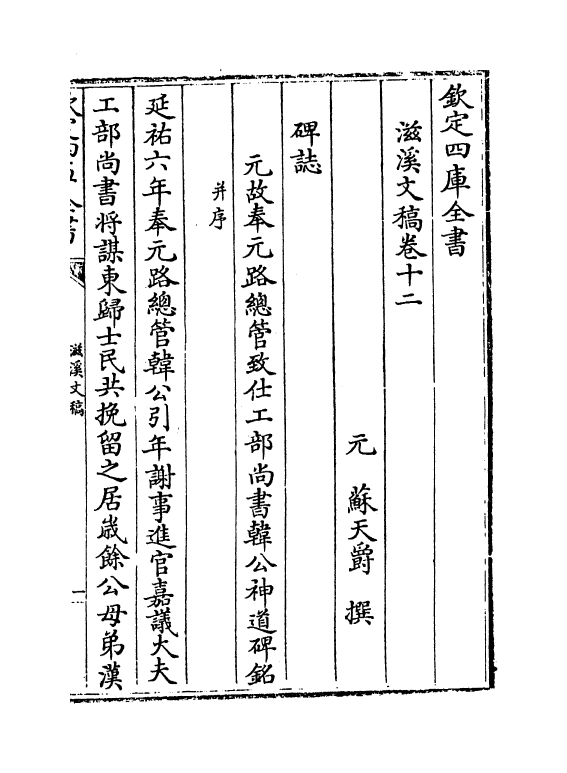 欽定四庫全書
滋溪文稿卷十二
元 蘇天爵 撰
碑誌
元故奉元路總管致仕工部尚書韓公神道碑銘
并序
延祐六年奉元路總管韓公引年謝事進官嘉議大夫
工部尚書將謀東歸士民共挽留之居歲餘公母弟漢
欽定四庫全書
滋溪文稿
一